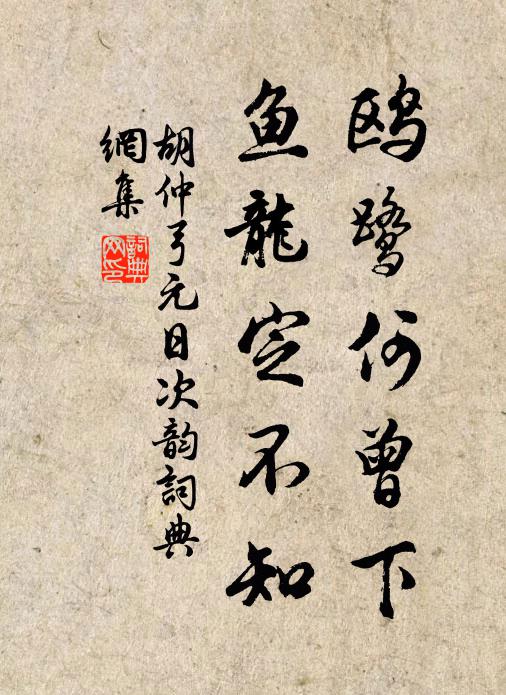 鸥鹭何曾下
鱼龍定不知
胡仲弓元日次韵詞典
網集
詞典
网印